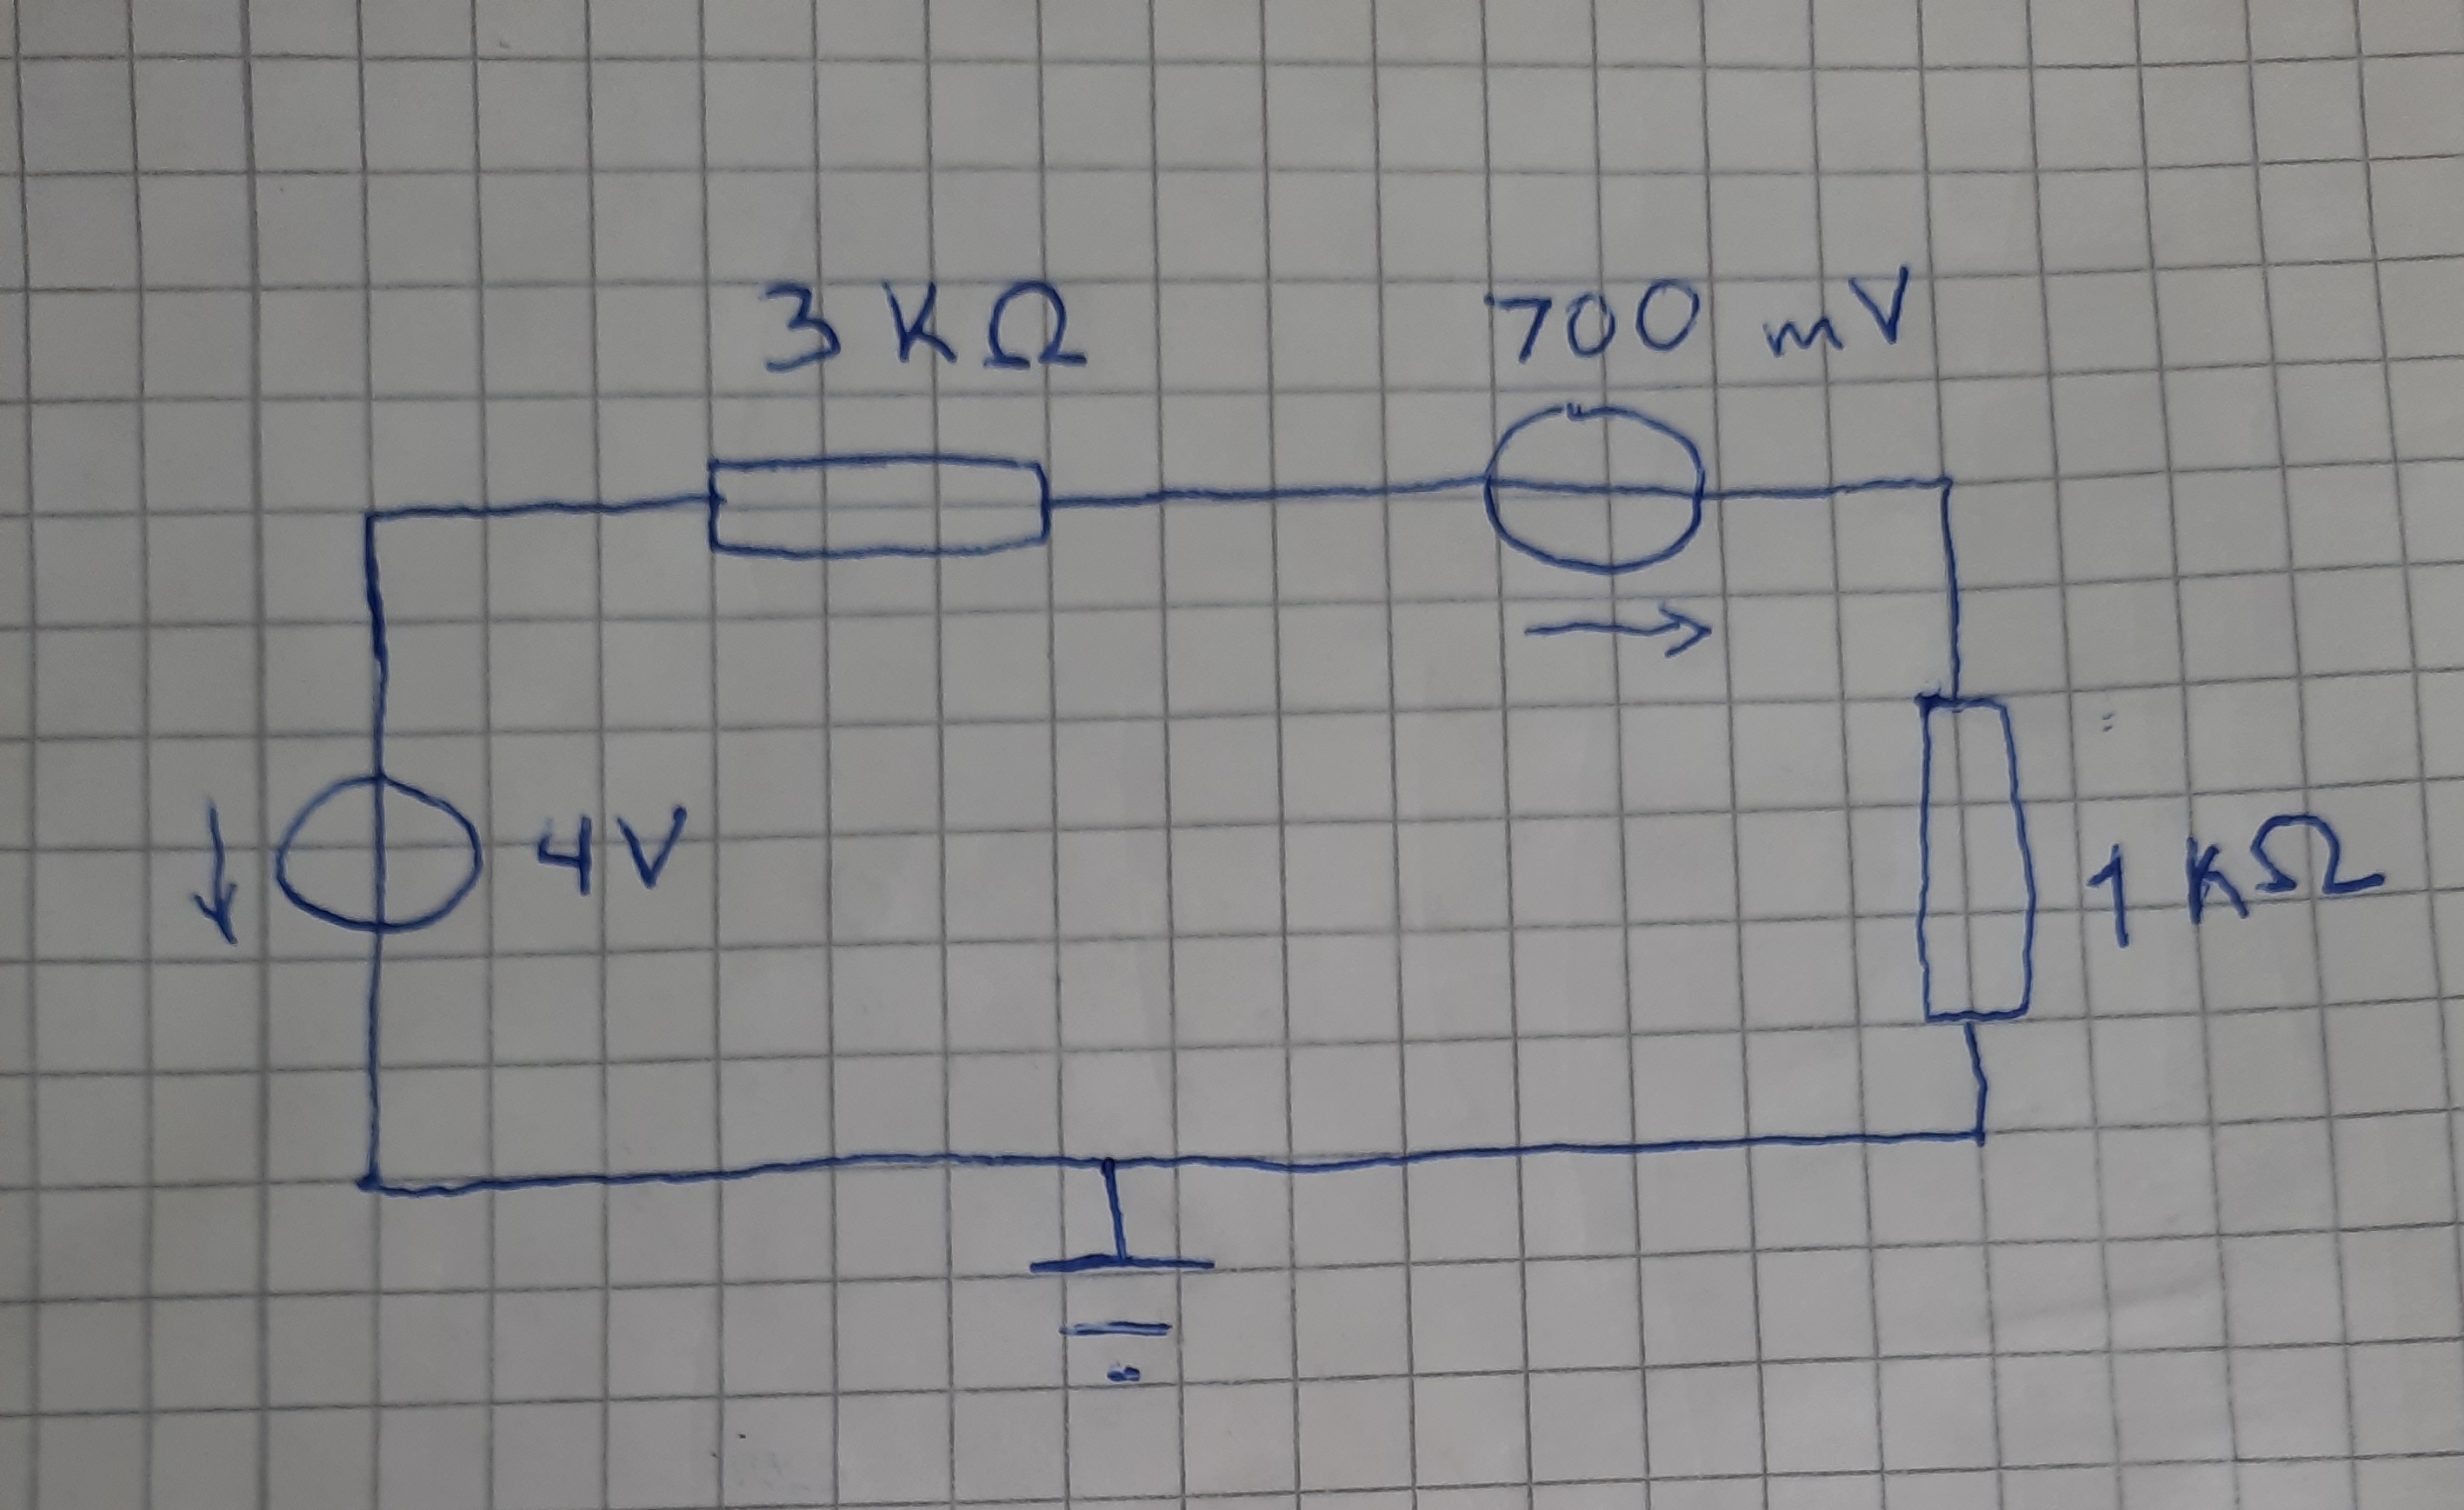 3 KΩ
700 mV
4V
1 KΩ